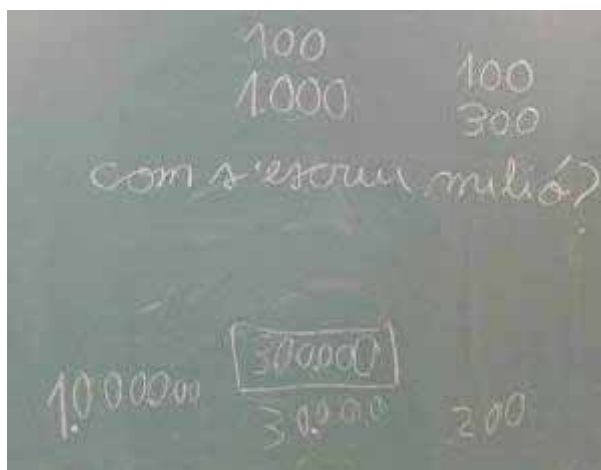 100
1.000
100
300
com s'escriu milió?
300.000
1.000.000
30.000
200